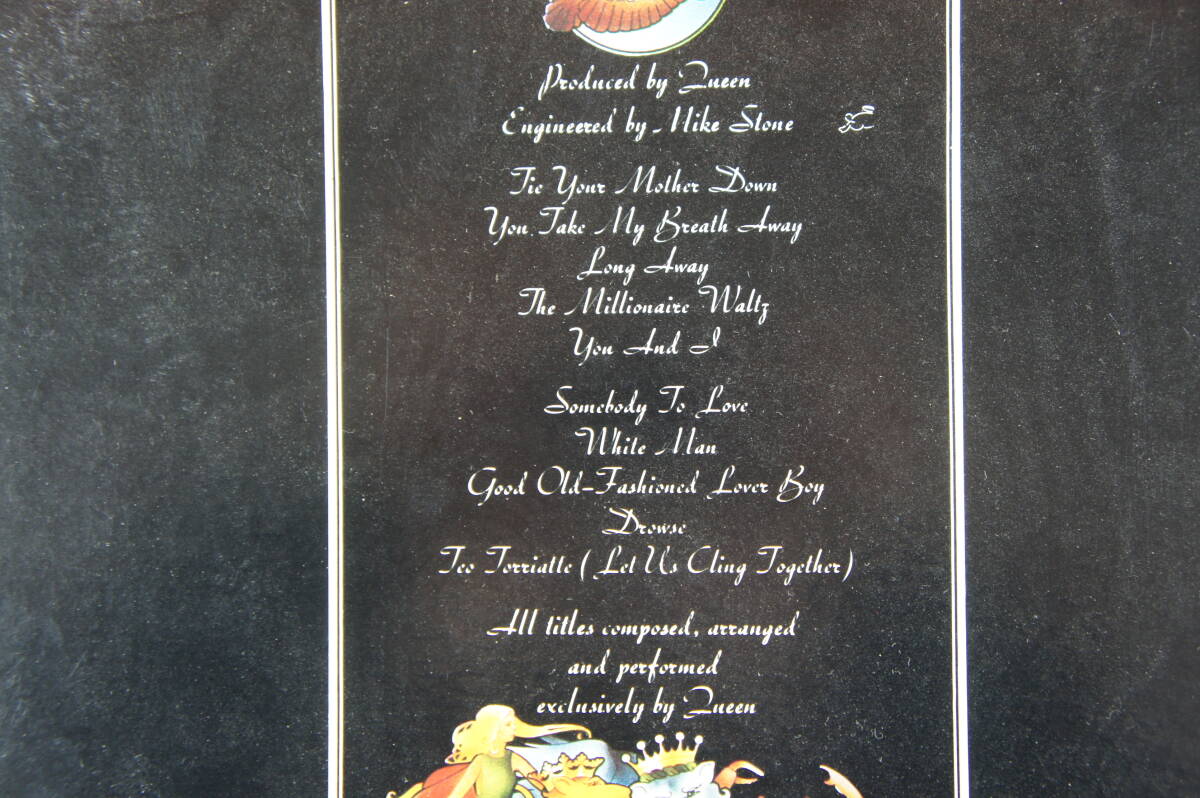 Produced by Queen
Engineered by Mike Stone
Tie Your Mother Down
You Take My Breath Away
Long Away
The Millionaire Waltz
You And I
Somebody To Love
White Man
Good Old-Fashioned Lover Boy
Drowse
Teo Torriatte (Let Us Cling Together)
All titles composed, arranged
and performed
exclusively by Queen